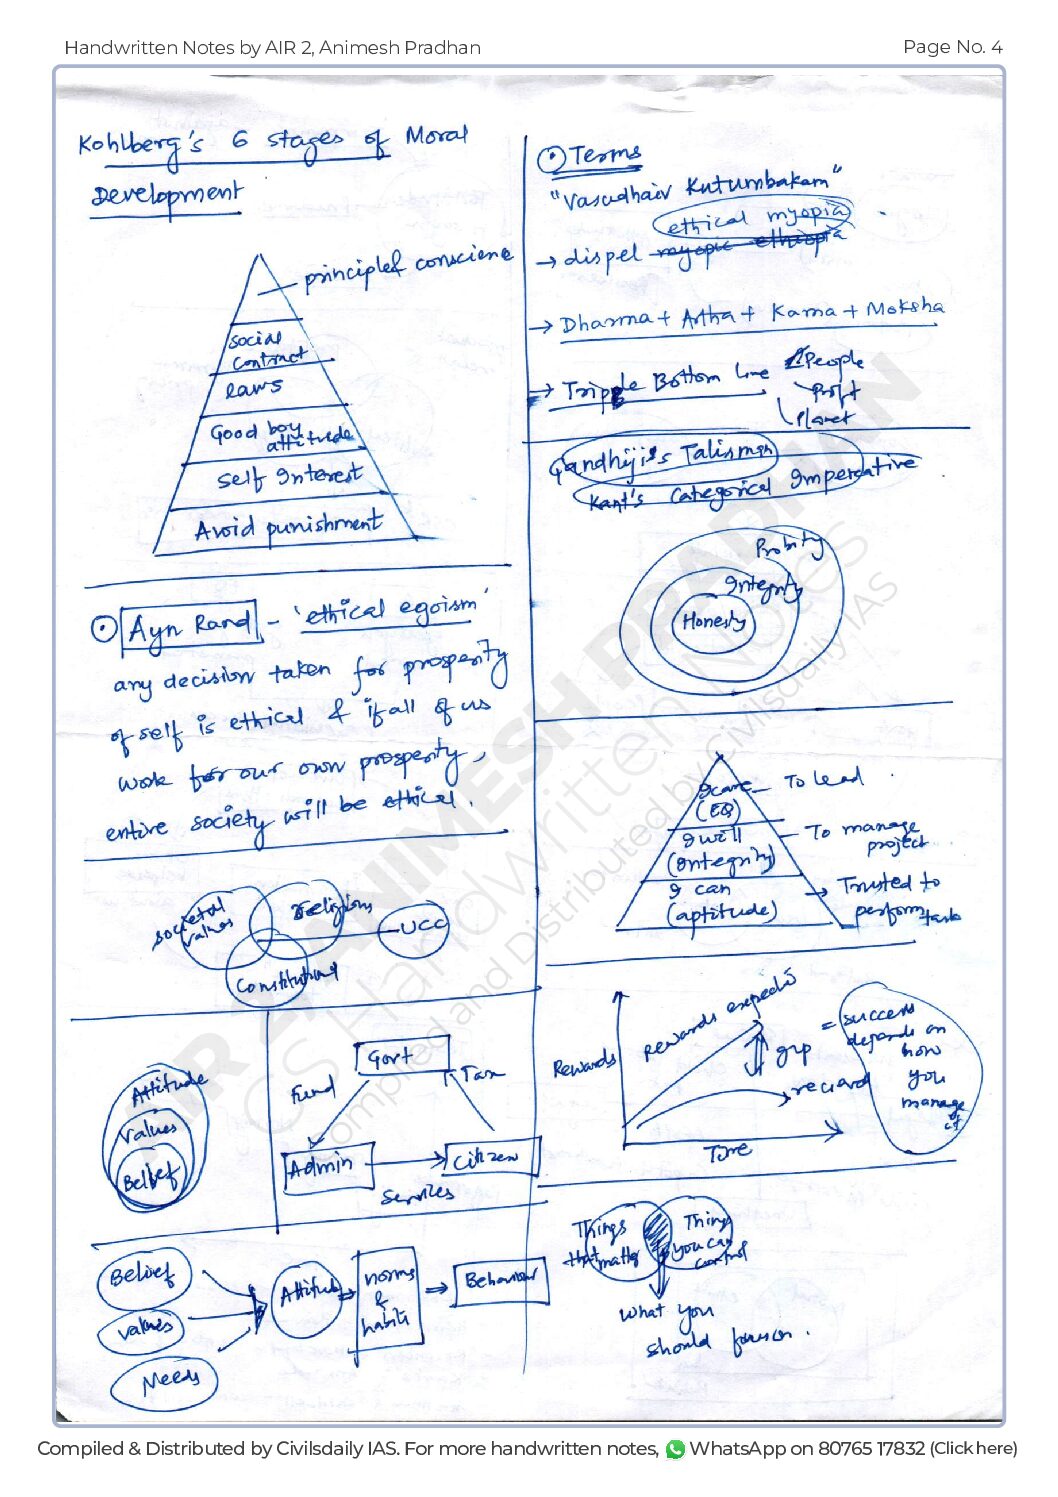 Handwritten Notes by AIR 2, Animesh Pradhan
Page No. 4
Kohlberg's 6 stages of Moral
Development
principled conscience
Social
contract
laws
Good boy
attitude
Self Interest
Avoid punishment
Ayn Rand - 'ethical egoism'
any decision taken for prosperity
of self is ethical & if all of us
work for our own prosperity,
entire society will be ethical.
societal
values
religious
UCC
Constitutional
Attitude
Values
Belief
Govt
Fund
Tax
Admin
Citizen
Services
Belief
Values
Needs
Attitude
norms
&
habits
Behaviour
Terms
"Vasudhaiv Kutumbakam"
ethical myopia
→ dispel myopic ethiopia
→ Dharma + Artha + Kama + Moksha
→ Tripple Bottom Line
People
Profit
Planet
Gandhiji's Talisman
Kant's Categorical Imperative
Probity
Integrity
Honesty
I care
(EQ)
To lead
I will
(Integrity)
To manage
project
I can
(aptitude)
Trusted to
perform task
Rewards
Rewards expected
gap
reward
Time
= success
depends on
how
you
manage
it
Things
that matter
Things
you can
control
what you
should focus on.
AIR 2 ANIMESH PRADHAN
CS Handwritten Notes
Compiled and Distributed by Civilsdaily IAS
Compiled & Distributed by Civilsdaily IAS. For more handwritten notes, WhatsApp on 80765 17832 (Click here)